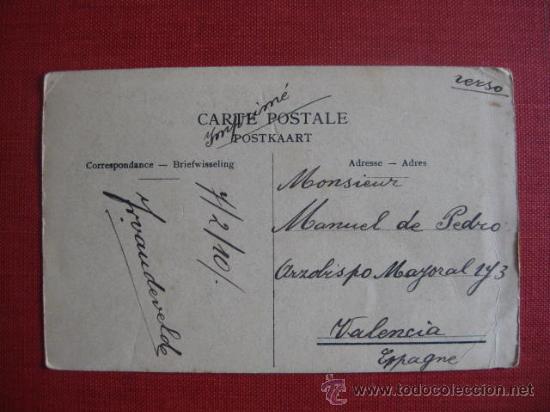 verso
Imprimé
CARTE POSTALE
POSTKAART
Correspondance — Briefwisseling
Adresse — Adres
4/2/10/.
Monsieur
Manuel de Pedro
Arzobispo Mayoral 2y3
Valencia
Espagne
todocoleccion.net